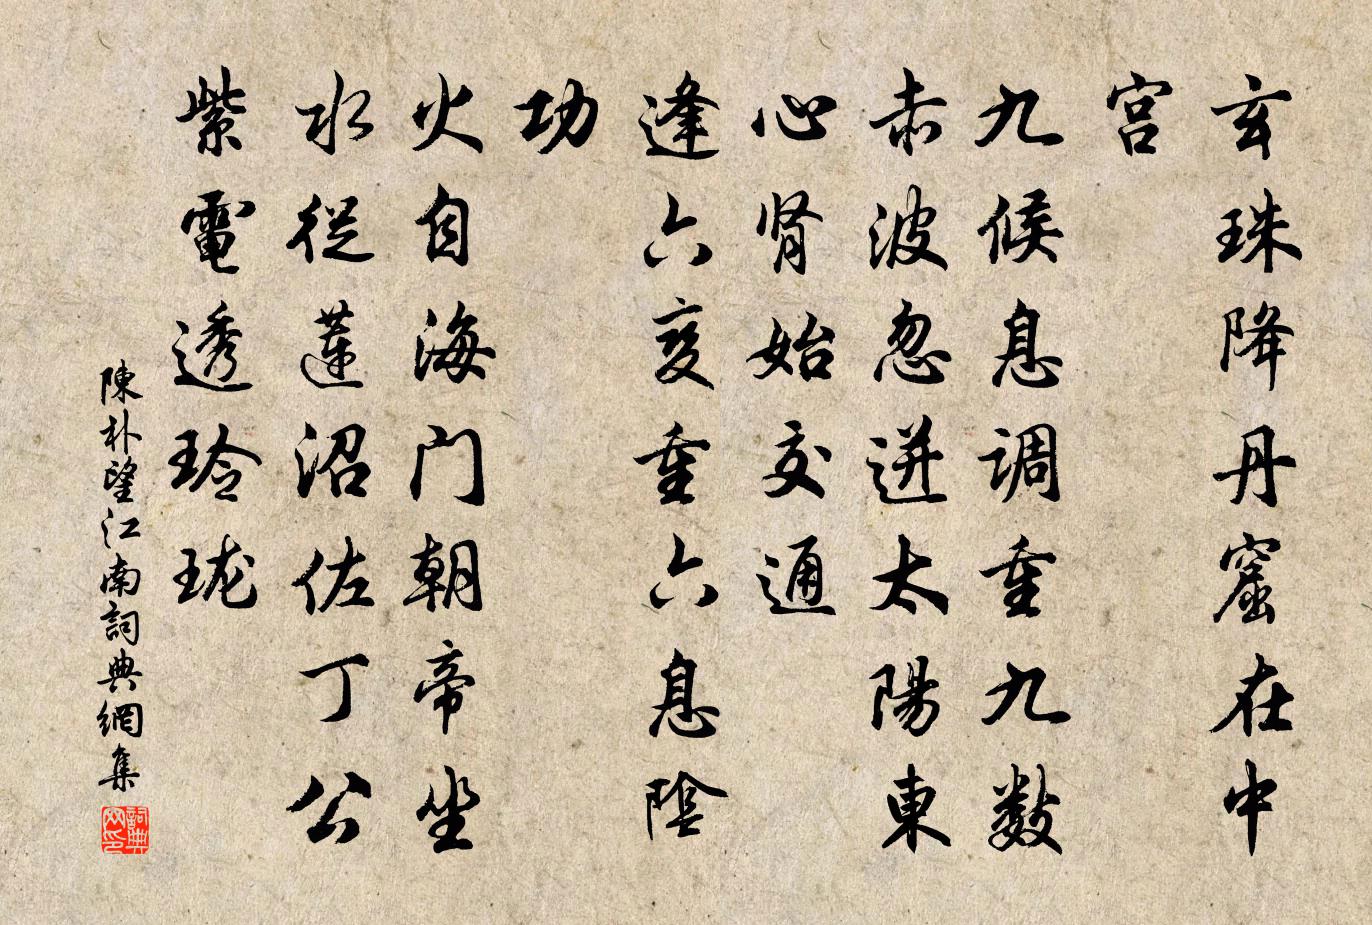 玄珠降丹窟在中
宫
九候息调重九数
赤波忽迸太陽東
心肾始交通
逢六变重六息陰
功
火自海门朝帝坐
水從蓮沼佐丁公
紫電透玲珑
陳朴望江南詞典網集
詞典网印